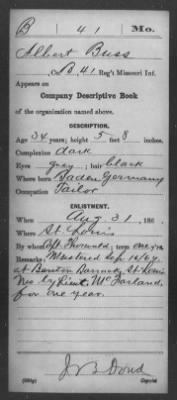 B 41 Mo.
Albert Buss
Co. B, 41 Reg't Missouri Inf.
Appears on
Company Descriptive Book
of the organization named above.
DESCRIPTION.
Age 34 years; height 5 feet 8 inches.
Complexion Dark
Eyes gray; hair black
Where born Baden Germany
Occupation Tailor
ENLISTMENT.
When Aug. 31, 186 .
Where St. Louis
By whom ; term one y'rs.
Remarks: Mustered Sep 16/64
at Benton Barracks St. Louis
Mo by Lieut. McFarland.
for one year.
J B Dond
Copyist.